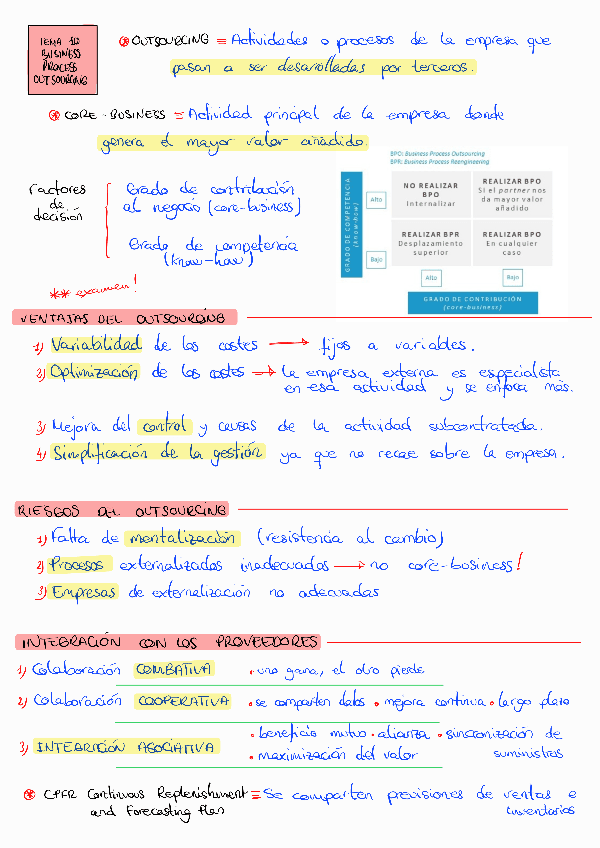 TEMA 10
BUSINESS
PROCESS
OUTSOURCING
* OUTSOURCING = Actividades o procesos de la empresa que
pasan a ser desarrolladas por terceros.
* CORE-BUSINESS = Actividad principal de la empresa donde
genera el mayor valor añadido.
BPO: Business Process Outsourcing
BPR: Business Process Reengineering
Factores
de
decisión
Grado de contribución
al negocio (core-business)
Grado de competencia
(know-how)
GRADO DE COMPETENCIA
(know-how)
Alto
NO REALIZAR
BPO
Internalizar
REALIZAR BPO
Si el partner nos
da mayor valor
añadido
Bajo
REALIZAR BPR
Desplazamiento
superior
REALIZAR BPO
En cualquier
caso
Alto
Bajo
GRADO DE CONTRIBUCIÓN
(core-business)
** examen!
VENTAJAS DEL OUTSOURCING
1) Variabilidad de los costes → fijos a variables.
2) Optimización de los costes → la empresa externa es especialista
en esa actividad y se enfoca más.
3) Mejora del control y causas de la actividad subcontratada.
4) Simplificación de la gestión ya que no recae sobre la empresa.
RIESGOS DEL OUTSOURCING
1) Falta de mentalización (resistencia al cambio)
2) Procesos externalizados inadecuados → no core-business!
3) Empresas de externalización no adecuadas
INTEGRACIÓN CON LOS PROVEEDORES
1) Colaboración COMBATIVA • uno gana, el otro pierde
2) Colaboración COOPERATIVA • se comparten datos • mejora continua • largo plazo
3) INTEGRACIÓN ASOCIATIVA • beneficio mutuo • alianza • sincronización de
suministros
• maximización del valor
* CPFR Continuous Replenishment = Se comparten previsiones de ventas e
and Forecasting Plan inventarios